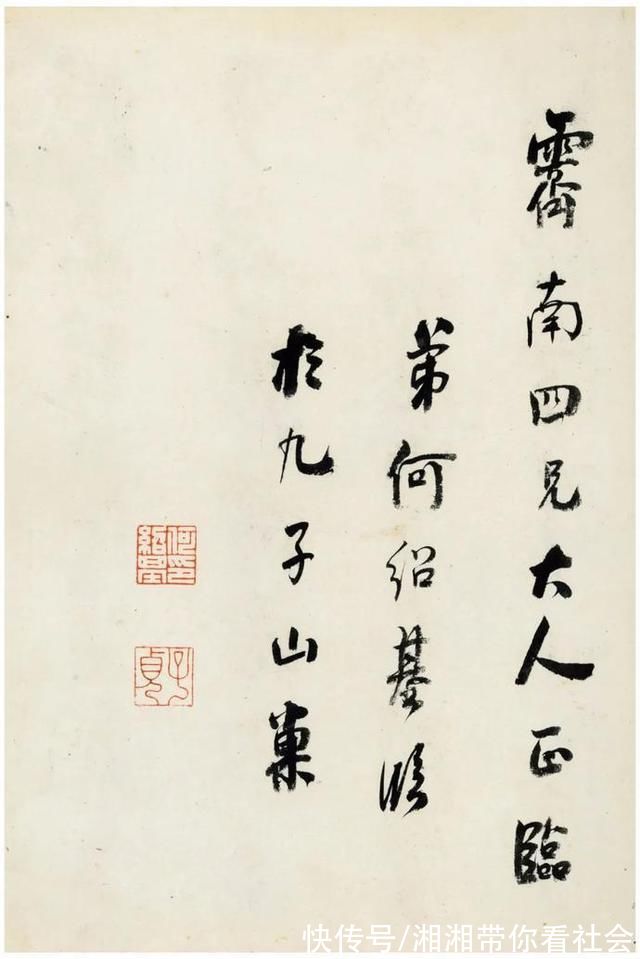 霽南四兄大人正臨
弟何紹基
於九子山巢
何紹基印
子貞
快传号/湘湘带你看社会